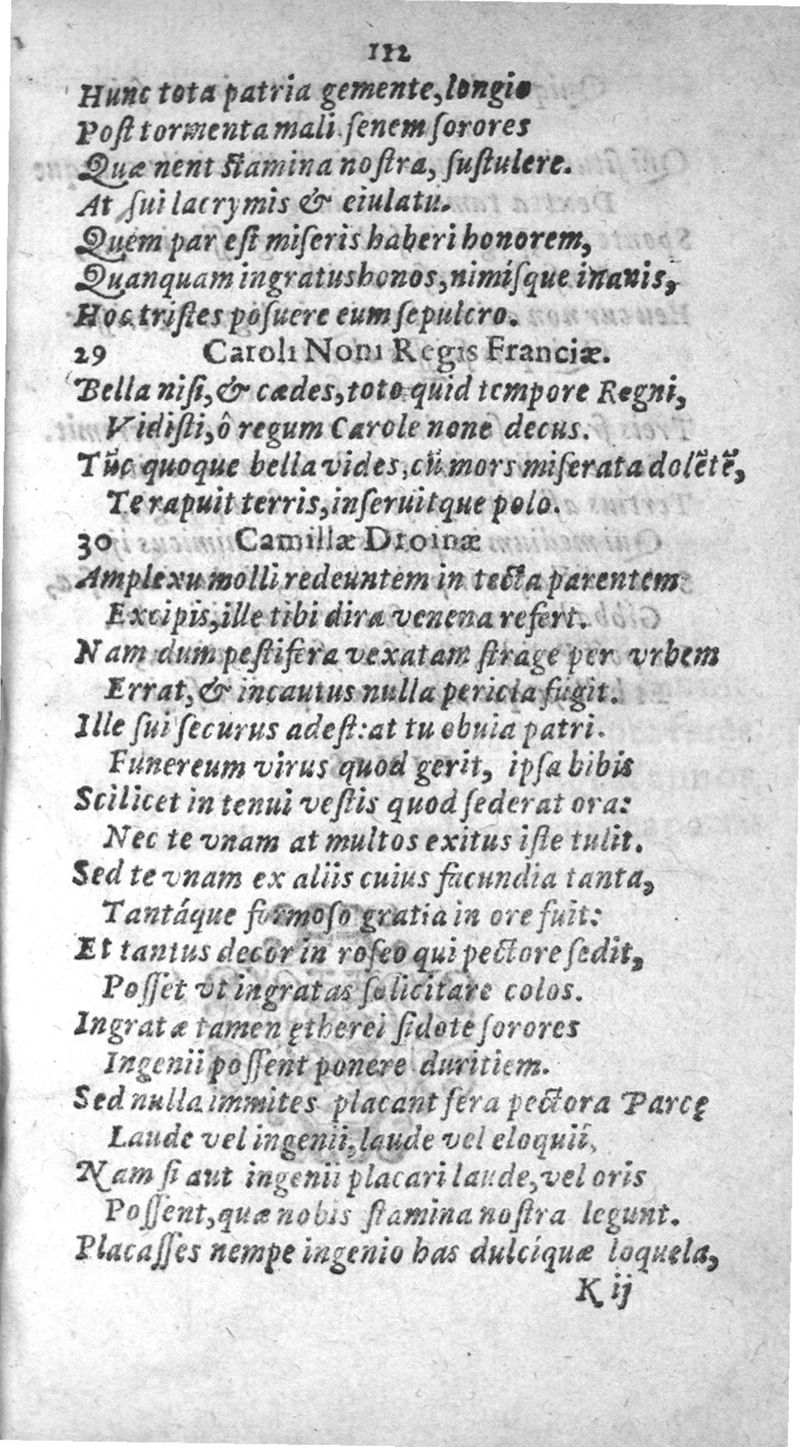 112
Hunc tota patria gemente, longio
Post tormenta mali senem sorores
Quæ nent stamina nostra, sustulere.
At sui lacrymis & eiulatu.
Quem par est miseris haberi honorem,
Quanquam ingratus honos, nimisque inanis,
Hoc tristes posuere eum sepulcro.
29 Caroli Noni Regis Franciæ.
Bella nisi, & cædes, toto quid tempore Regni,
Vidisti, ô regum Carole none decus.
Tūc quoque bella vides, cū mors miserata dolētē,
Te rapuit terris, inseruitque polo.
30 Camillæ Droinæ
Amplexu molli redeuntem in tecta parentem
Excipis, ille tibi dira venena refert.
Nam dum pestifera vexatam strage per vrbem
Errat, & incautus nulla pericla fugit.
Ille sui securus adest: at tu obuia patri.
Funereum virus quod gerit, ipsa bibis
Scilicet in tenui vestis quod sederat ora:
Nec te vnam at multos exitus iste tulit.
Sed te vnam ex aliis cuius facundia tanta,
Tantáque formoso gratia in ore fuit:
Et tantus decor in roseo qui pectore sedit,
Posset vt ingratas solicitare colos.
Ingratæ tamen ętherei sidote sorores
Ingenii possent ponere duritiem.
Sed nulla immites placant fera pectora Parcę
Laude vel ingenii, laude vel eloquii,
Nam si aut ingenii placari laude, vel oris
Possent, quæ nobis stamina nostra legunt.
Placasses nempe ingenio has dulcíquæ loquela,
K ij